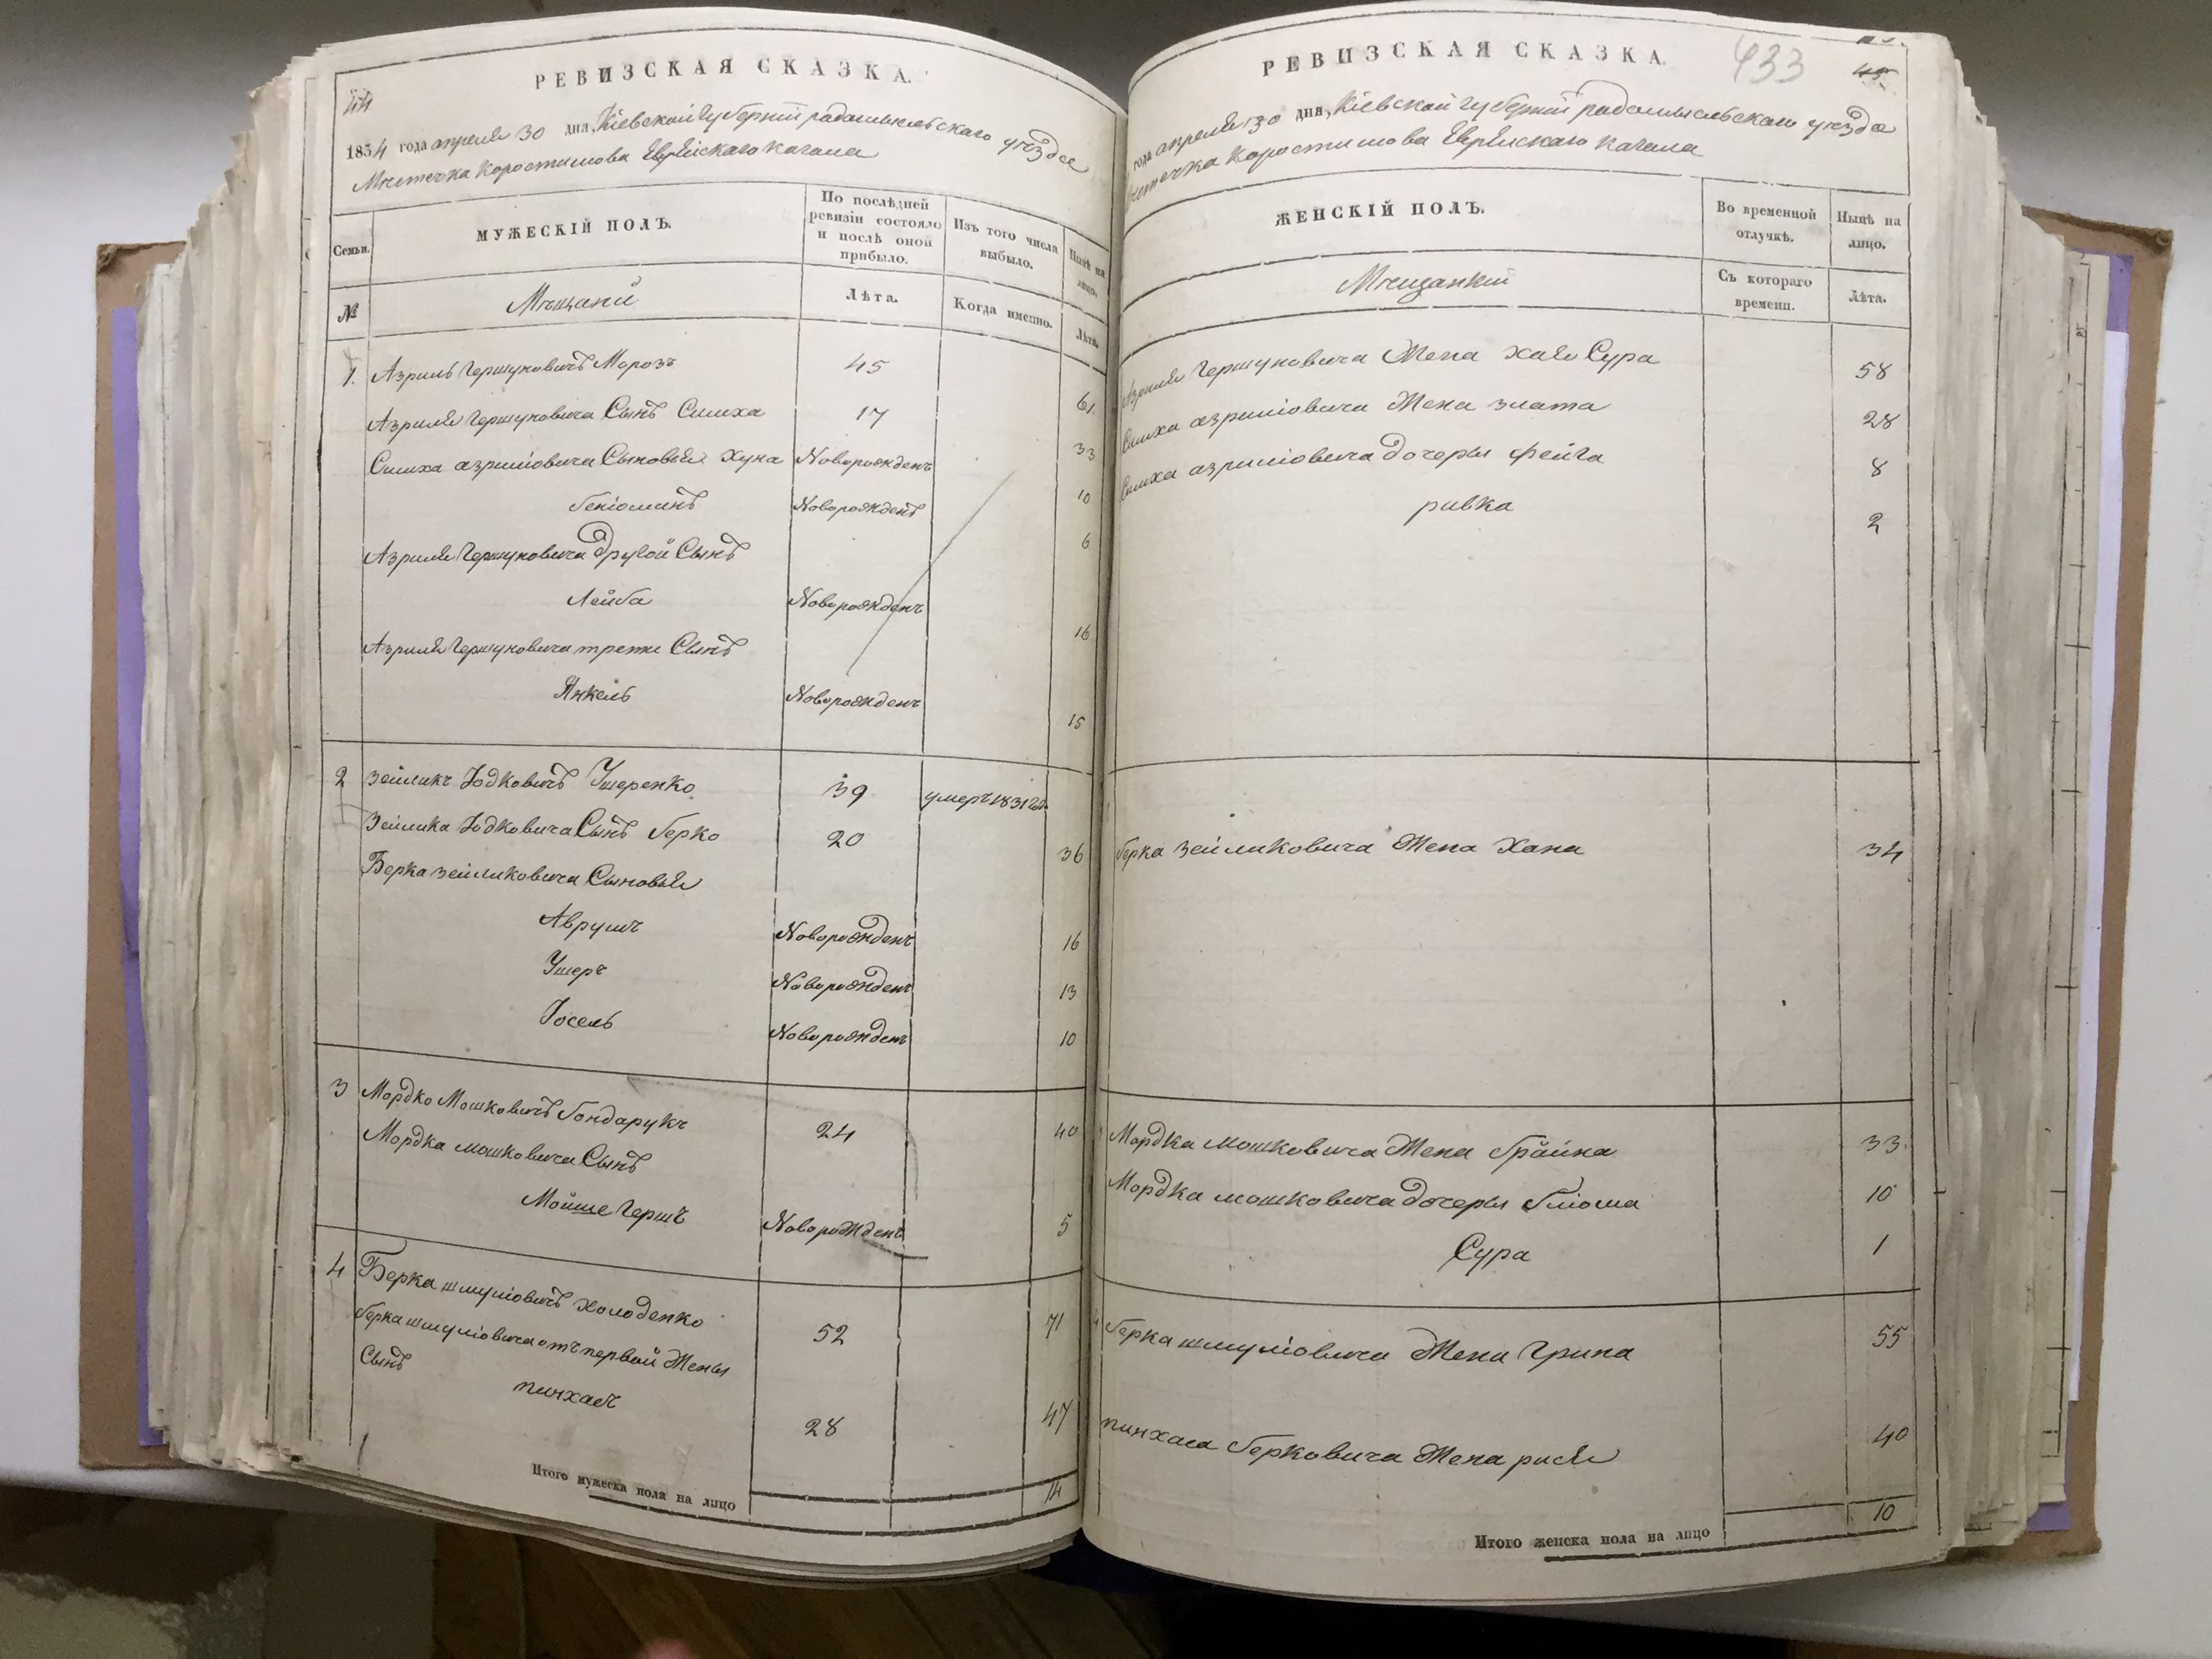 РЕВИЗСКАЯ СКАЗКА.
44
1834 года апреля 30 дня, Кіевской губерніи радомысльскаго уѣзда
Мѣстечка Коростишова Еврейскаго Кагала
Семьи. МУЖЕСКІЙ ПОЛЪ. По послѣдней ревизіи состояло и послѣ оной прибыло. Изъ того числа выбыло. Нынѣ на лицо.
№ Мѣщани Лѣта. Когда именно. Лѣта.
1. Азриль Гершуковичъ Морозъ 45 61.
Азриля Гершуковича Сынъ Симха 17 33
Симха азриліовича Сыновья Хуна Новорожденъ 10
беніоминъ Новорожденъ 6
Азриля Гершуковича другой Сынъ
Лейба Новорожденъ 16
Азриля Гершуковича трети Сынъ
Янкель Новорожденъ 15
2 Зейликъ Іодковичъ Ушеренко 39 умеръ 1831 го
Зейлика Іодковича Сынъ берко 20 36
Берка зейликовича Сыновья
Аврумъ Новорожденъ 16
Ушеръ Новорожденъ 13
Іосель Новорожденъ 10
3 Мордко Мошковичъ бондарукъ 24 40
Мордка мошковича Сынъ
Мойше Гершъ Новорожденъ 5
4 Берка шмуліовичъ холоденко 52 71
берка шмуліовича отъ первой Жены
Сынъ
пинхасъ 28 47
Итого мужеска пола на лицо 14
РЕВИЗСКАЯ СКАЗКА.
433
45
года апреля 30 дня, Кіевской губерніи радомысльскаго уѣзда
Мѣстечка Коростишова Еврейскаго Кагала
ЖЕНСКІЙ ПОЛЪ. Во временной отлучкѣ. Нынѣ на лицо.
Мѣщанки Съ котораго времени. Лѣта.
Азриля Гершуковича Жена хая Сура 58
Симха азриліовича Жена злата 28
Симха азриліовича дочеры фейга 8
ривка 2
берка Зейликовича Жена Хана 34
Мордка мошковича Жена брайна 33
Мордка мошковича дочеры блюма 10
Сура 1
4 берка шмуліовича Жена Грина 55
пинхаса берковича Жена рися 40
Итого женска пола на лицо 10